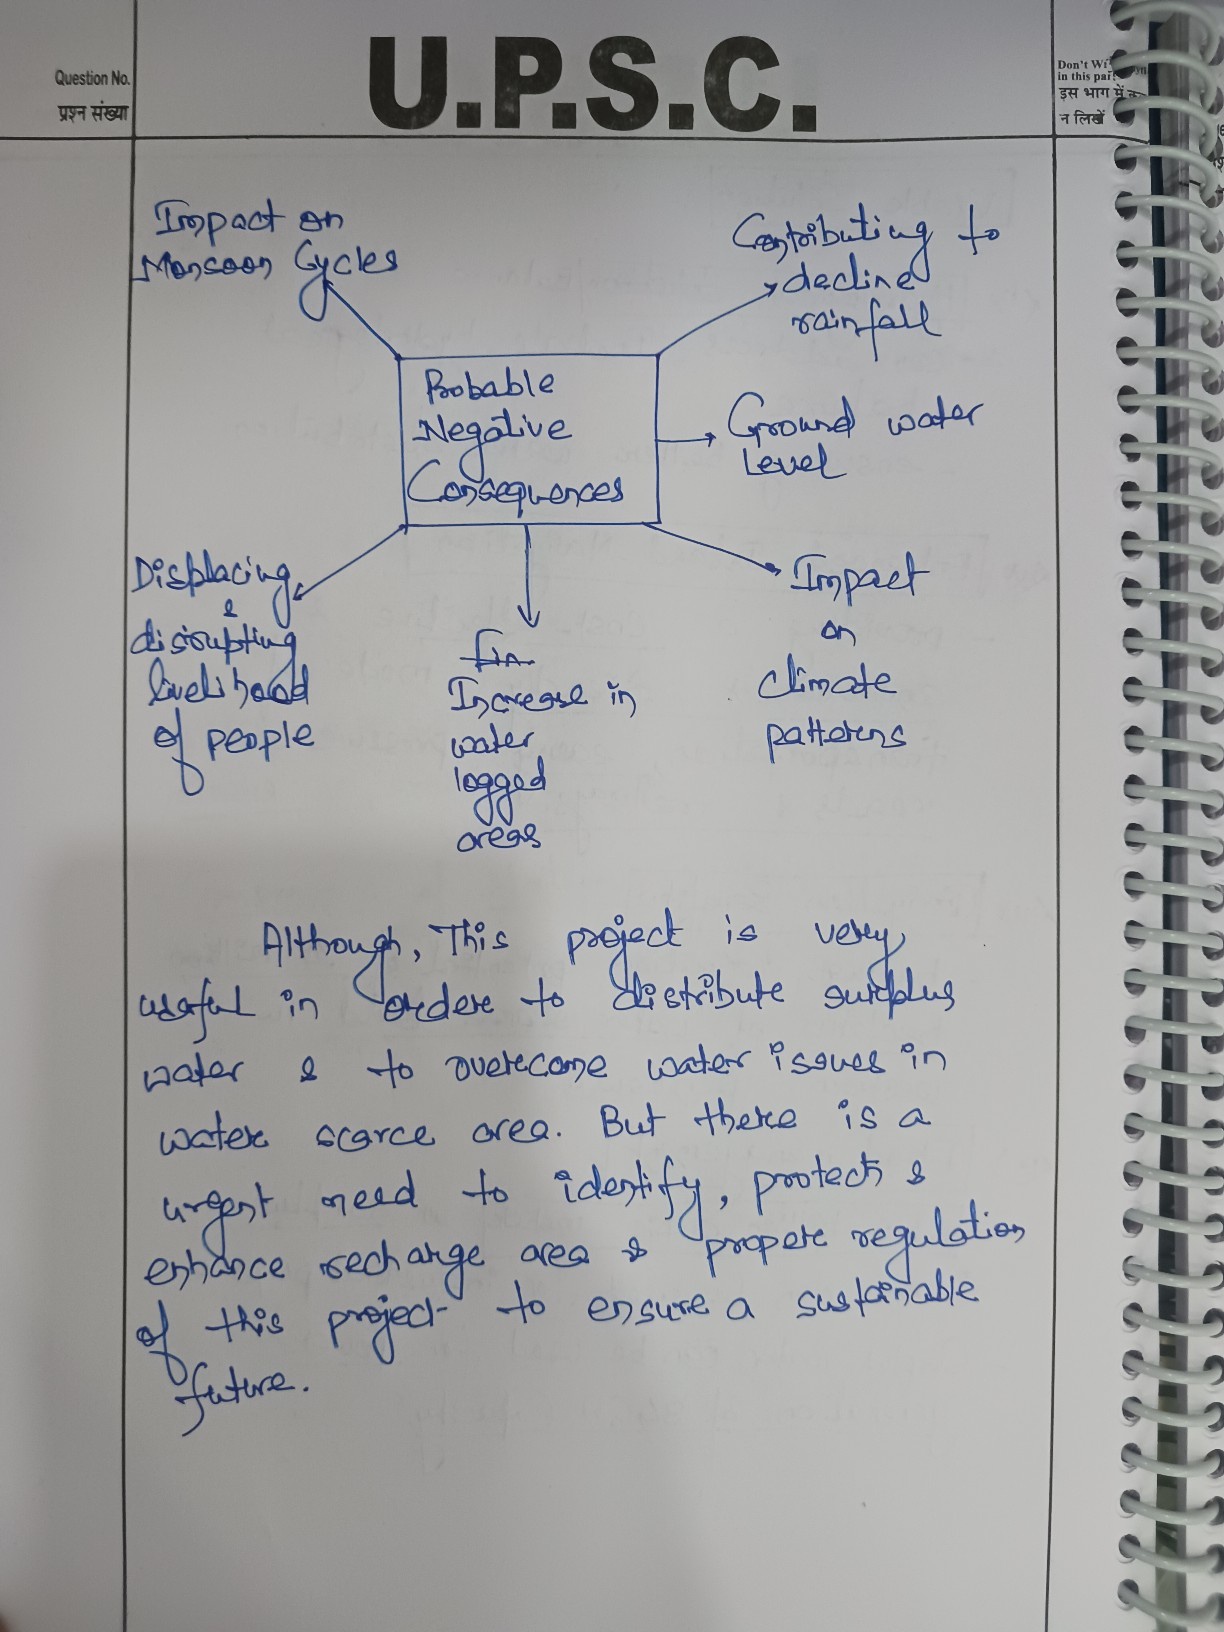 Question No.
प्रश्न संख्या
U.P.S.C.
Don't Wri
in this par
इस भाग में
न लिखें
Impact on
Monsoon Cycles
Contributing to
decline
rainfall
Probable
Negative
Consequences
Ground water
Level
Displacing
&
disrupting
livelihood
of people
Increase in
water
logged
areas
Impact
on
climate
patterns
Although, This project is very
useful in order to distribute surplus
water & to overcome water issues in
water scarce area. But there is a
urgent need to identify, protect &
enhance recharge area & proper regulation
of this project to ensure a sustainable
future.